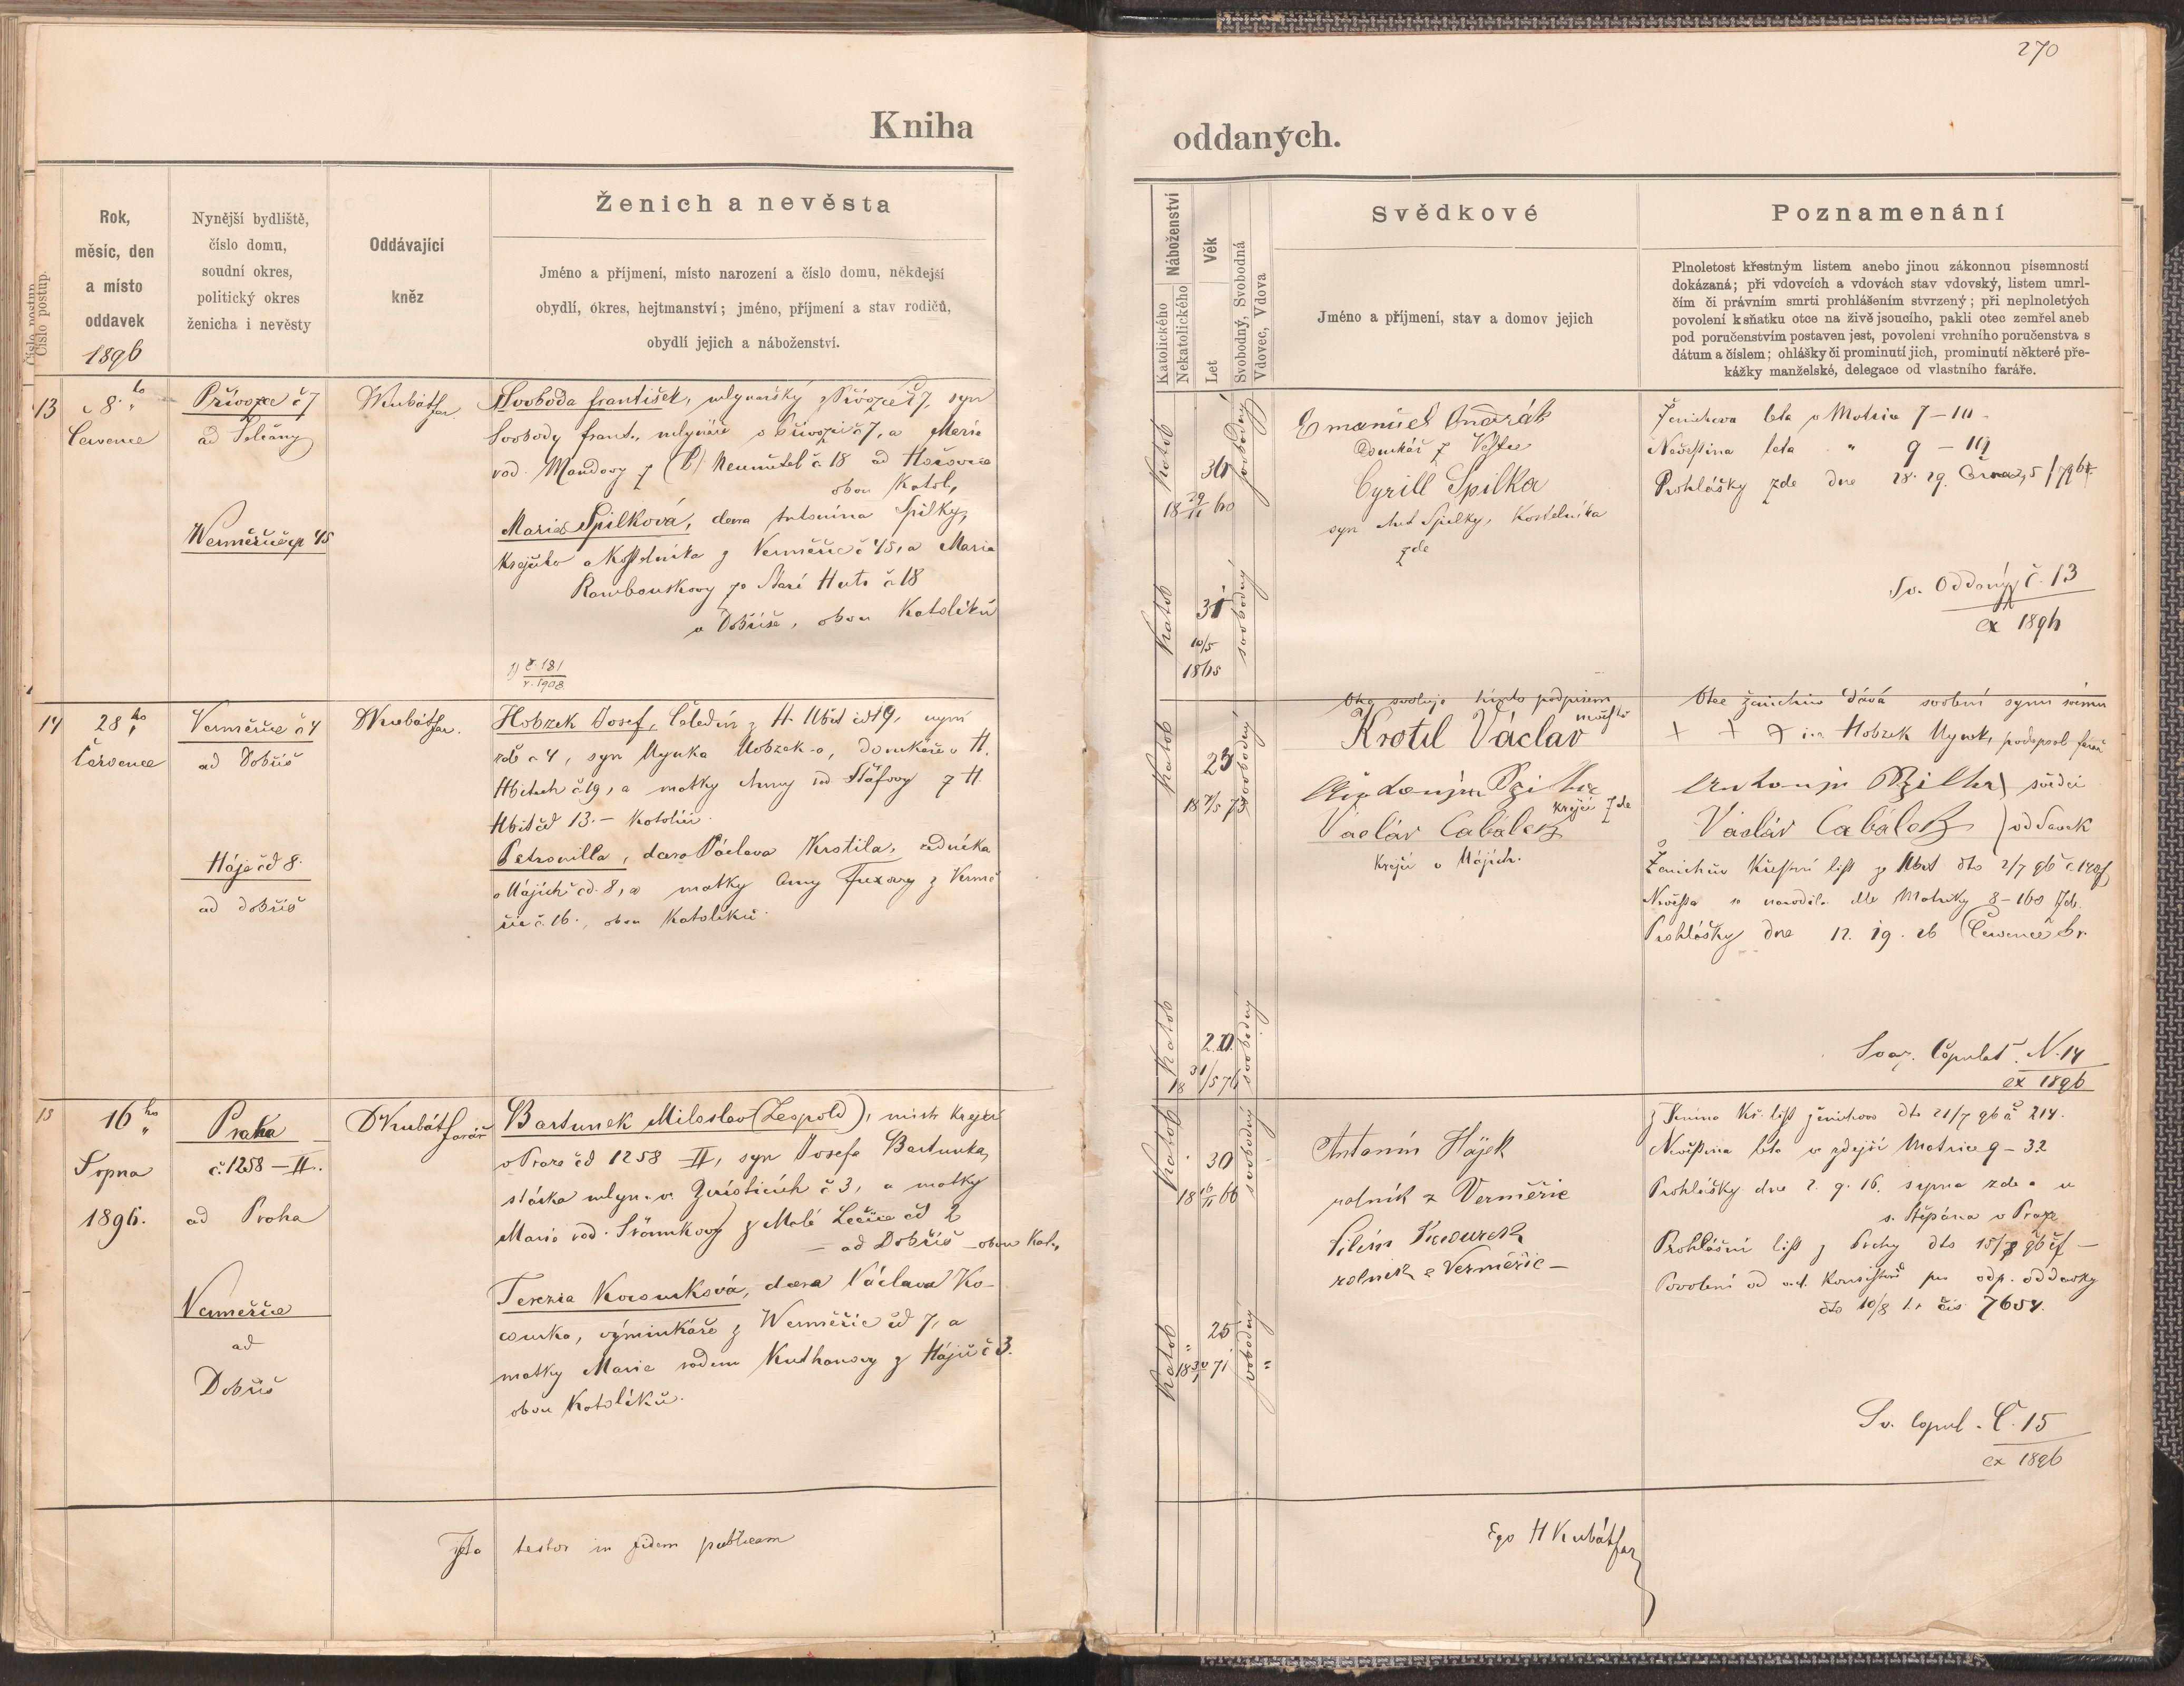 270
Kniha
oddaných.
Číslo postup.
Rok,
měsíc, den
a místo
oddavek
1896
Nynější bydliště,
číslo domu,
soudní okres,
politický okres
ženicha i nevěsty
Oddávající
kněz
Ženich a nevěsta
Jméno a příjmení, místo narození a číslo domu, někdejší
obydlí, okres, hejtmanství; jméno, příjmení a stav rodičů,
obydlí jejich a náboženství.
Náboženství
Katolického
Nekatolického
Věk
Let
Svobodný, Svobodná
Vdovec, Vdova
Svědkové
Jméno a příjmení, stav a domov jejich
Poznamenání
Plnoletost křestným listem anebo jinou zákonnou písemností
dokázaná; při vdovcích a vdovách stav vdovský, listem umrl-
čím či právním smrti prohlášením stvrzený; při neplnoletých
povolení k sňatku otce na živě jsoucího, pakli otec zemřel aneb
pod poručenstvím postaven jest, povolení vrchního poručenstva s
dátum a číslem; ohlášky či prominutí jich, prominutí některé pře-
kážky manželské, delegace od vlastního faráře.
13
8. ho
Července
č 7
Kubát far
Svoboda František, mlynářský z č 7, syn
Svobody Frant., mlynáře č 7, a Marie
rod. z Neumětel č 18 ad Hořovice
obou Katol,
Wermeřice čp 45
Maria Spilková, dcera Antonína Spilky,
a Kostelníka z Vermeřic č 45, a Marie
Rambouskovy ze Staré Huti č 18
u Dobříše, obou Katolíků
č. 181
r. 1908
Katol
36
18 29/11 60
svobodný
Katol
31
10/5
1865
svobodný
Emanuel Ondrák
Domkář z
Cyrill Spilka
syn Ant Spilky, Kostelníka
zde
Ženichova léta v Matrice 7 – 10
Nevěstina léta " 9 – 19
Prohlášky zde dne 28. 29.
Sv. Oddaných č. 13
ex 1896
14
28 ho
Července
Vermeřice č 4
ad Dobříš
Kubát far.
Hobzek Josef, čeledín z H. Hbit čd 19, nyní
zde č 4, syn Hynka Hobzek-a, domkáře v H.
Hbitech č 19, a matky Anny rod Štáfovy z H.
Hbit čd 13. – Katolíci
Háje čd 8.
ad Dobříš
Petronilla, dcera Václava Krotila, zedníka
v Hájích čd. 8, a matky Anny Fuxovy z Verme
řic č. 16., obou Katolíků.
Katol
23
18 7/5 73
svobodný
Katol
20
18 31/5 76
svobodný
Otec svoluje tímto podpisem
Krotil Václav
krejčí zde
Václav Cabálek
krejčí v Hájích.
Otec ženichův dává svolení synu svému
+ + + Hobzek Hynek, podepsal farář
svědci
Václav Cabálek oddavek
Ženichův Křestní list z Hbit dto 2/7 96 č. 140
Nevěsta se narodila dle Matriky 8 – 160 zde
Prohlášky dne 12. 19. 26 Července t. r.
Svaz. Copulat. N. 14
ex 1896
15
16 ho
Srpna
1896.
Praha
č. 1258 – II.
ad Praha
Kubát farář
Bartunek Miloslav (Leopold), mistr krejčí
v Praze čd 1258 – II, syn Josefa Bartunka,
stárka mlyn. v č 3, a matky
Marie rod. Šrámkovy z Malé Lečice čd 2
– ad Dobříš – obou Kat.,
Vermeřice
ad
Dobříš
Terezia Kocourková, dcera Václava Ko-
courka, výminkáře z Wermeřic čd 7, a
matky Marie rodem Kuthanovy z Hájů č 3.
obou Katolíků.
Katol
30
18 16/11 66
svobodný
Katol
25
18 30/1 71
svobodný
Antonín Hájek
rolník z Vermeřic
Kocourek
rolník z Vermeřic –
Kř. list ženichova dto 21/7 96 č 214.
Nevěstina léta v zdejší Matrice 9 – 32
Prohlášky dne 2. 9. 16. srpna zde a u
s. Štěpána v Praze
Prohlášní list z Prahy dto 15/8 96
Povolení od Konsistoře pro odp. oddavky
dto 10/8 t. r čís 7654.
Sv. Copul. Č. 15
ex 1896
testor in fidem publicam
Ego H Kubát far